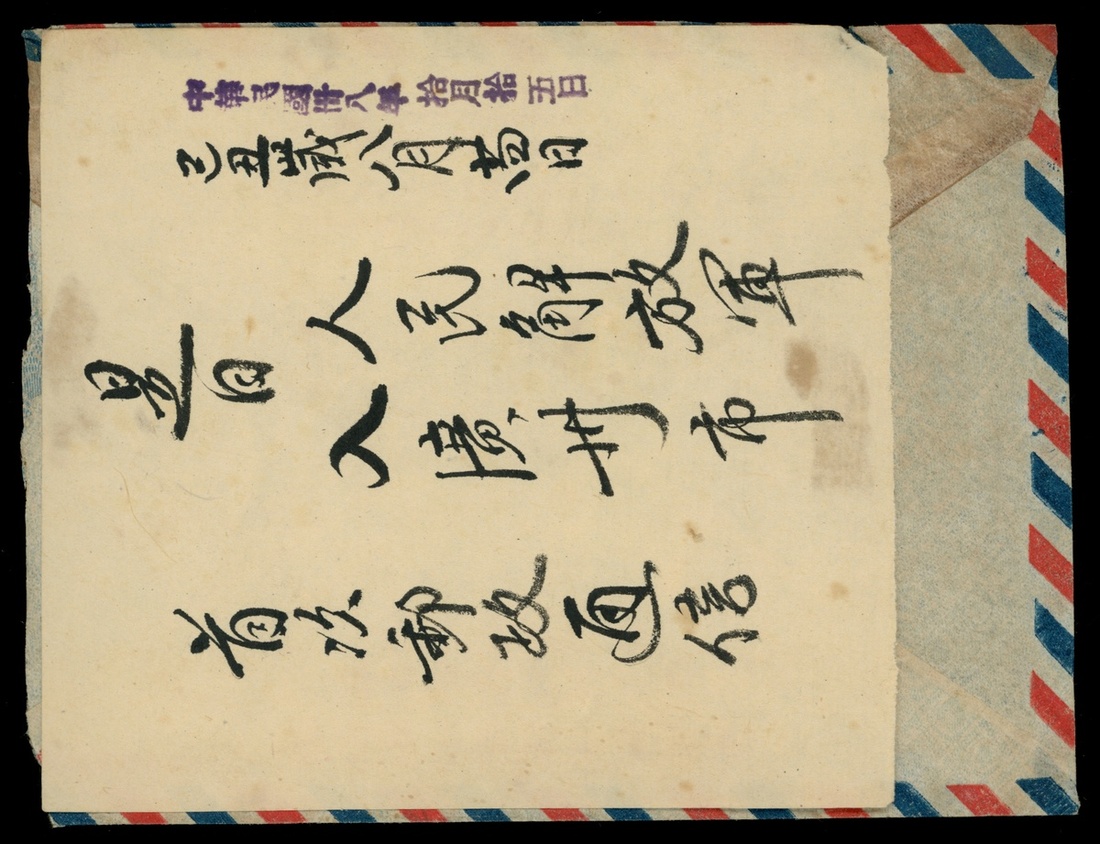 中華民國卅八年拾月拾五日
己丑歲八月廿四日
是日
人民解放軍
入廣州市
首次郵政通信